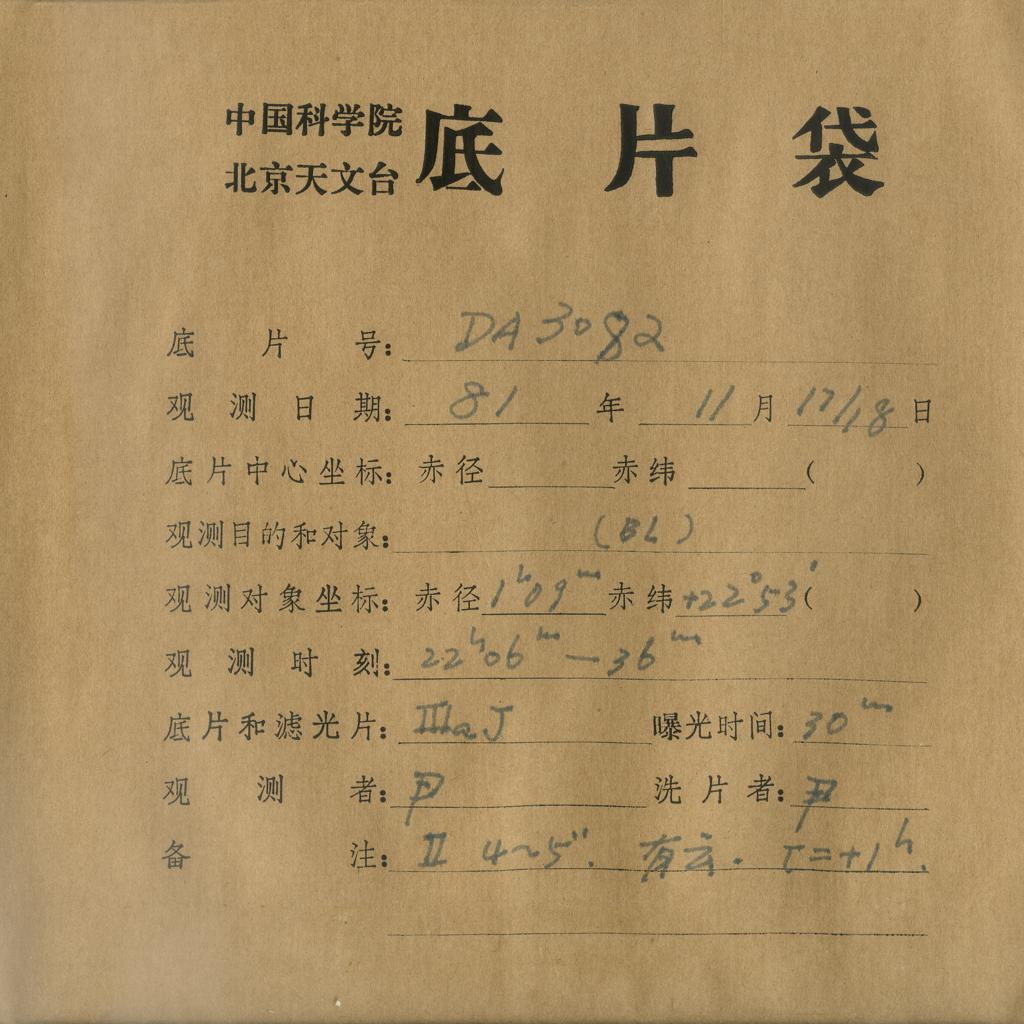 中国科学院
北京天文台
底片袋
底片号: DA3082
观测日期: 81年 11月 17/18日
底片中心坐标: 赤径 赤纬 ( )
观测目的和对象: (BL)
观测对象坐标: 赤径 1ʰ09ᵐ 赤纬 +22°53′ ( )
观测时刻: 22ʰ06ᵐ—36ᵐ
底片和滤光片: IIIaJ 曝光时间: 30ᵐ
观测者: 尹 洗片者: 尹
备注: II 4~5″. 有云. T=+1ʰ.